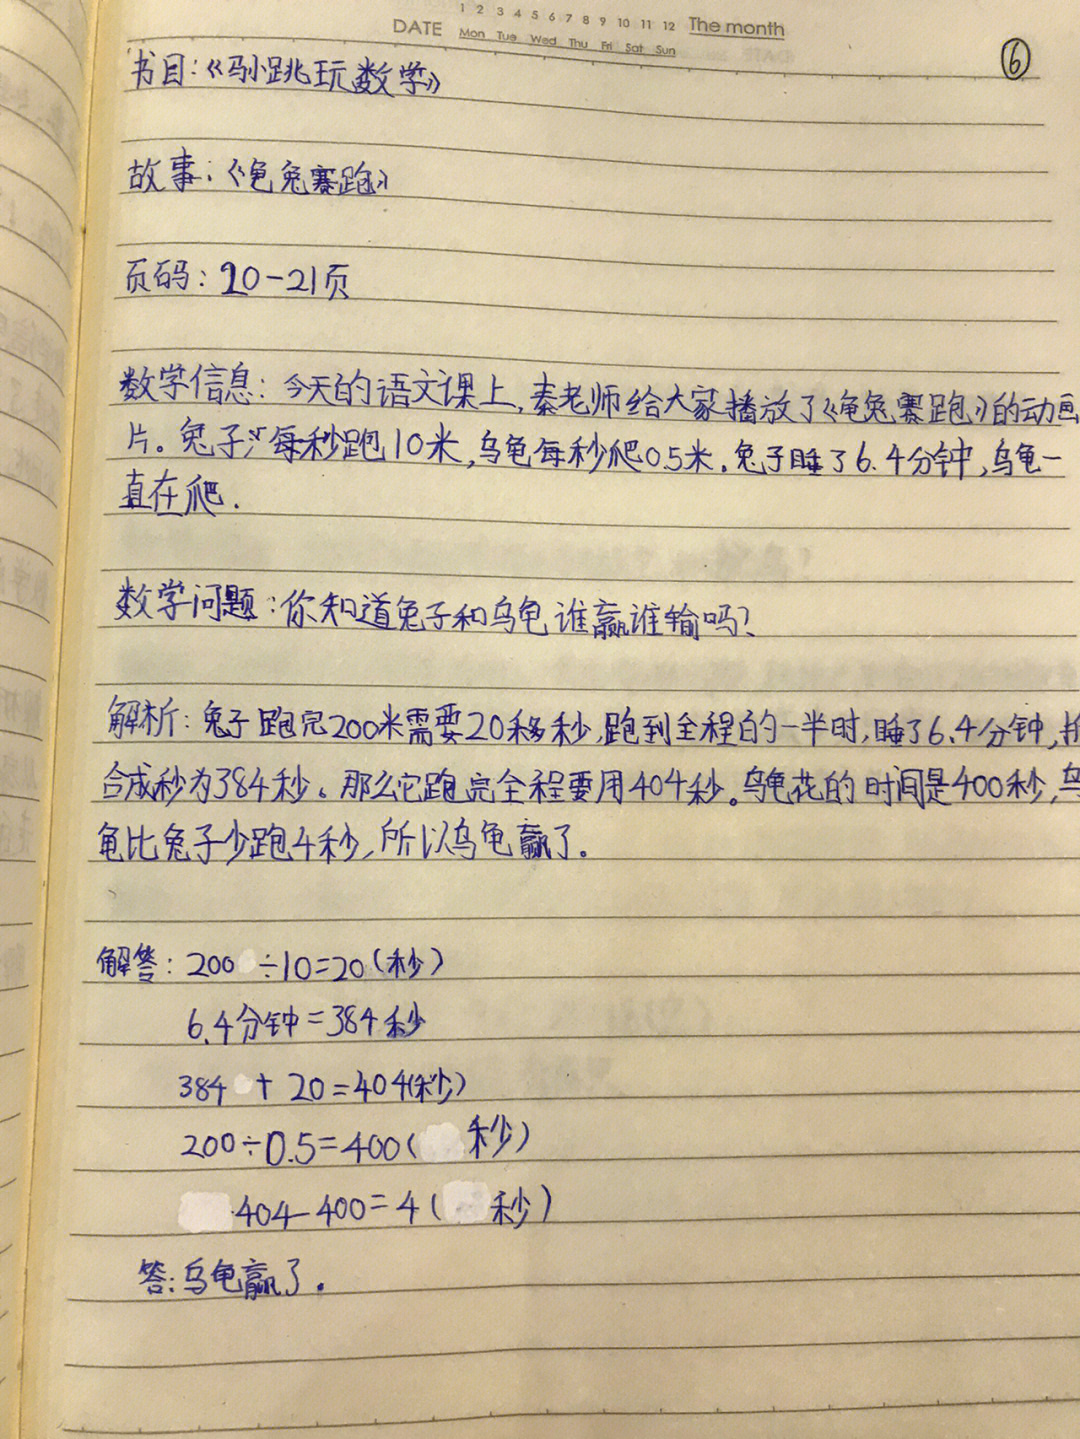 1 2 3 4 5 6 7 8 9 10 11 12 The month
DATE Mon Tue Wed Thu Fri Sat Sun
⑥
书目:《马小跳玩数学》
故事:《龟兔赛跑》
页码:20-21页
数学信息:今天的语文课上,秦老师给大家播放了《龟兔赛跑》的动画
片。兔子每秒跑10米,乌龟每秒爬0.5米.兔子睡了6.4分钟,乌龟一
直在爬.
数学问题:你知道兔子和乌龟谁赢谁输吗?
解析:兔子跑完200米需要20秒,跑到全程的一半时,睡了6.4分钟,折
合成秒为384秒。那么它跑完全程要用404秒。乌龟花的时间是400秒,乌
龟比兔子少跑4秒,所以乌龟赢了。
解答:200÷10=20(秒)
6.4分钟=384秒
384+20=404(秒)
200÷0.5=400(秒)
404-400=4(秒)
答:乌龟赢了.